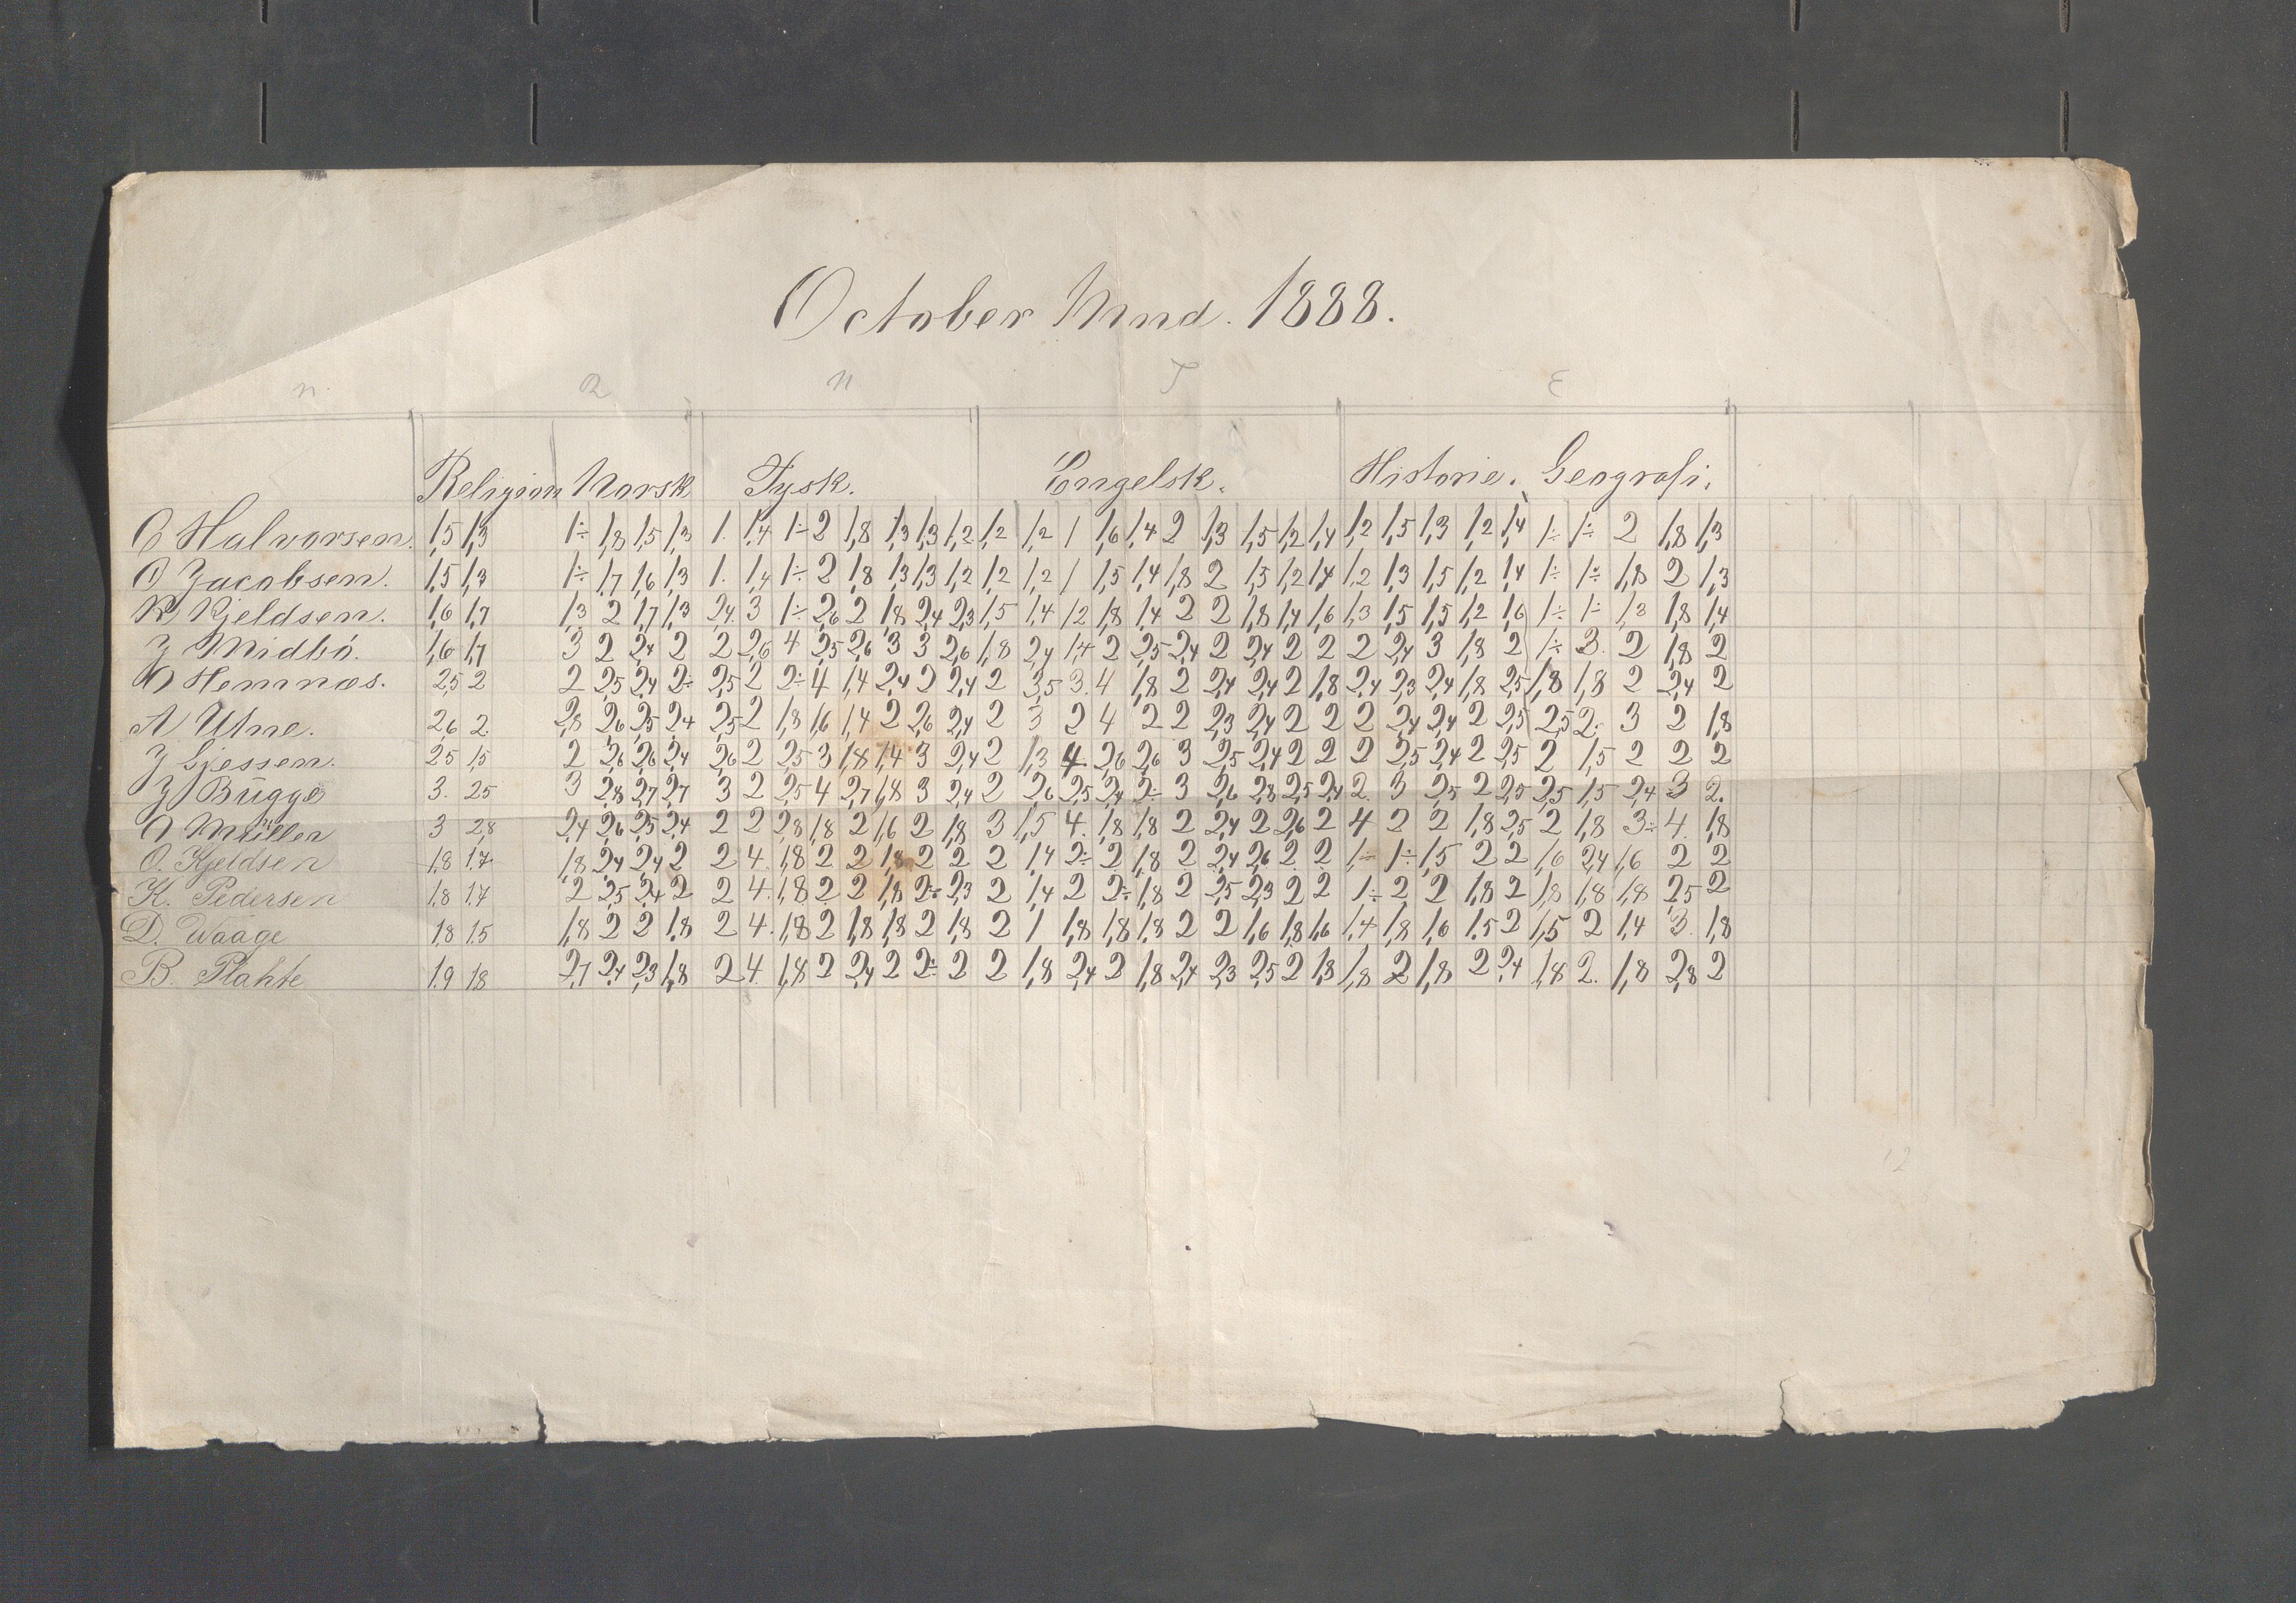 October Mnd. 1888.
n. R N T E
Religion Norsk Tysk. Engelsk. Historie. Geografi.
O Halvorsen. 1,5 1,3 1÷ 1,8 1,5 1,3 1. 1,4 1÷ 2 1,8 1,3 1,3 1,2 1,2 1,2 1 1,6 1,4 2 1,3 1,5 1,2 1,4 1,2 1,5 1,3 1,2 1,4 1÷ 1÷ 2 1,8 1,3
O Jacobsen. 1,5 1,3 1÷ 1,7 1,6 1,3 1. 1,4 1÷ 2 1,8 1,3 1,3 1,2 1,2 1,2 1 1,5 1,4 1,8 2 1,5 1,2 1,4 1,2 1,3 1,5 1,2 1,4 1÷ 1÷ 1,8 2 1,3
R Kjeldsen. 1,6 1,7 1,3 2 1,7 1,3 2,4. 3 1÷ 2,6 2 1,8 2,4 2,3 1,5 1,4 1,2 1,8 1,4 2 2 1,8 1,4 1,6 1,3 1,5 1,5 1,2 1,6 1÷ 1÷ 1,3 1,8 1,4
J Midbö. 1,6 1,7 3 2 2,4 2 2 2,6 4 2,5 2,6 3 3 2,6 1,8 2,4 1,4 2 2,5 2,4 2 2,4 2 2 2 2,4 3 1,8 2 1÷ 3. 2 1,8 2
Hemnæs. 2,5 2 2 2,5 2,4 2÷ 2,5 2 2÷ 4 1,4 2,4 2 2,4 2 3,5 3. 4 1,8 2 2,4 2,4 2 1,8 2,4 2,3 2,4 1,8 2,5 1,8 1,8 2 2,4 2
A Utne. 2,6 2. 2,8 2,6 2,5 2,4 2,5 2 1,8 1,6 1,4 2 2,6 2,4 2 3 2 4 2 2 2,3 2,4 2 2 2 2,4 2,4 2 2,5 2,5 2. 3 2 1,8
J Gjessen. 25 1,5 2 2,6 2,6 2,4 2,6 2 2,5 3 1,8 1,4 3 2,4 2 1,3 4. 2,6 2,6 3 2,5 2,4 2 2 2 2,5 2,4 2 2,5 2 1,5 2 2 2
J Bugge 3. 25 3 2,8 2,7 2,7 3 2 2,5 4 2,7 1,8 3 2,4 2 2,6 2,5 2,4 2÷ 3 2,6 2,8 2,5 2,4 2. 3 2,5 2 2,5 2,5 1,5 2,4 3 2.
Müller 3 2,8 2,4 2,6 2,5 2,4 2 2 2,8 1,8 2 1,6 2 1,8 3 1,5 4. 1,8 1,8 2 2,4 2 2,6 2 4 2 2 1,8 2,5 2 1,8 3÷ 4. 1,8
O. Kjeldsen 1,8 1,7 1,8 2,4 2,4 2 2 4. 1,8 2 2 1,8 2 2 2 1,4 2÷ 2 1,8 2 2,4 2,6 2. 2 1÷ 1÷ 1,5 2 2 1,6 2,4 1,6 2 2
K. Pedersen 1,8 1,7 2 2,5 2,4 2 2 4. 1,8 2 2 1,8 2÷ 2,3 2 1,4 2 2÷ 1,8 2 2,5 2,3 2 2 1÷ 2 2 1,8 2 1,8 1,8 1,8 2,5 2
D. Waage 1,8 1,5 1,8 2 2 1,8 2 4. 1,8 2 1,8 1,8 2 1,8 2 1 1,8 1,8 1,8 2 2 1,6 1,8 1,6 1,4 1,8 1,6 1,5 2 1,5 2 1,4 3. 1,8
B. Plahte 1,9 1,8 2,7 2,4 2,3 1,8 2 4. 1,8 2 2,4 2 2÷ 2 2 1,8 2,4 2 1,8 2,4 2,3 2,5 2 1,8 1,8 2 1,8 2 2,4 1,8 2. 1,8 2,8 2